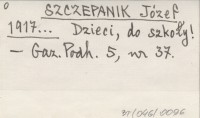 0
SZCZEPANIK Józef
1917... Dzieci, do szkoły!
— Gaz. Podh. 5, nr 37.